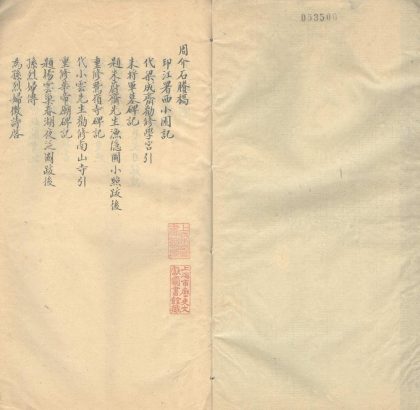 053500
周介石賸稿
印江署西小園記
代梁成齋勸修學宮引
朱将軍墓碑記
題朱啟齋先生漁隱圖小照跋後
重修景順寺碑記
代小雲先生勸修南山寺引
重修關帝廟碑記
題勝雲巢春湖夜泛圖跋後
孫烈婦傳
為孫烈婦徵詩啓
上海市歷史文
獻圖書館藏